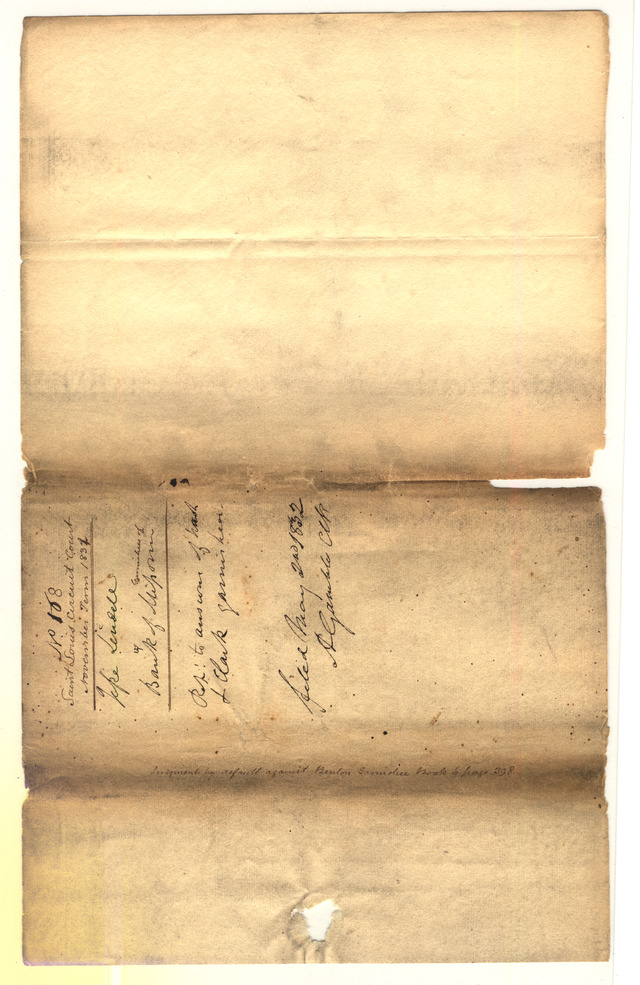 No 108
Saint Louis Circuit Court
November Term 1831
vs
Garnishee of
Bank of Missouri
Rep: to answers of
& Clark garnishees
filed May 2nd 1832
A Gamble Clk
Judgment by default against Benton Garnishee Book 6 page 398